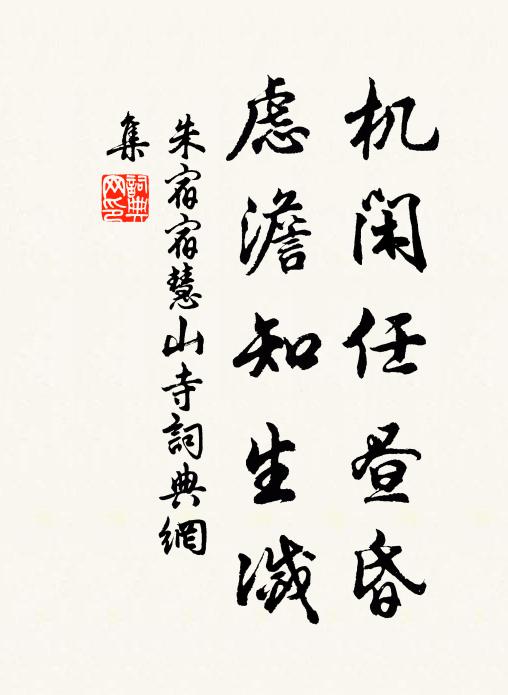 机闲任昼昏
虑澹知生滅
朱宿宿慧山寺詞典網
集
詞典網印